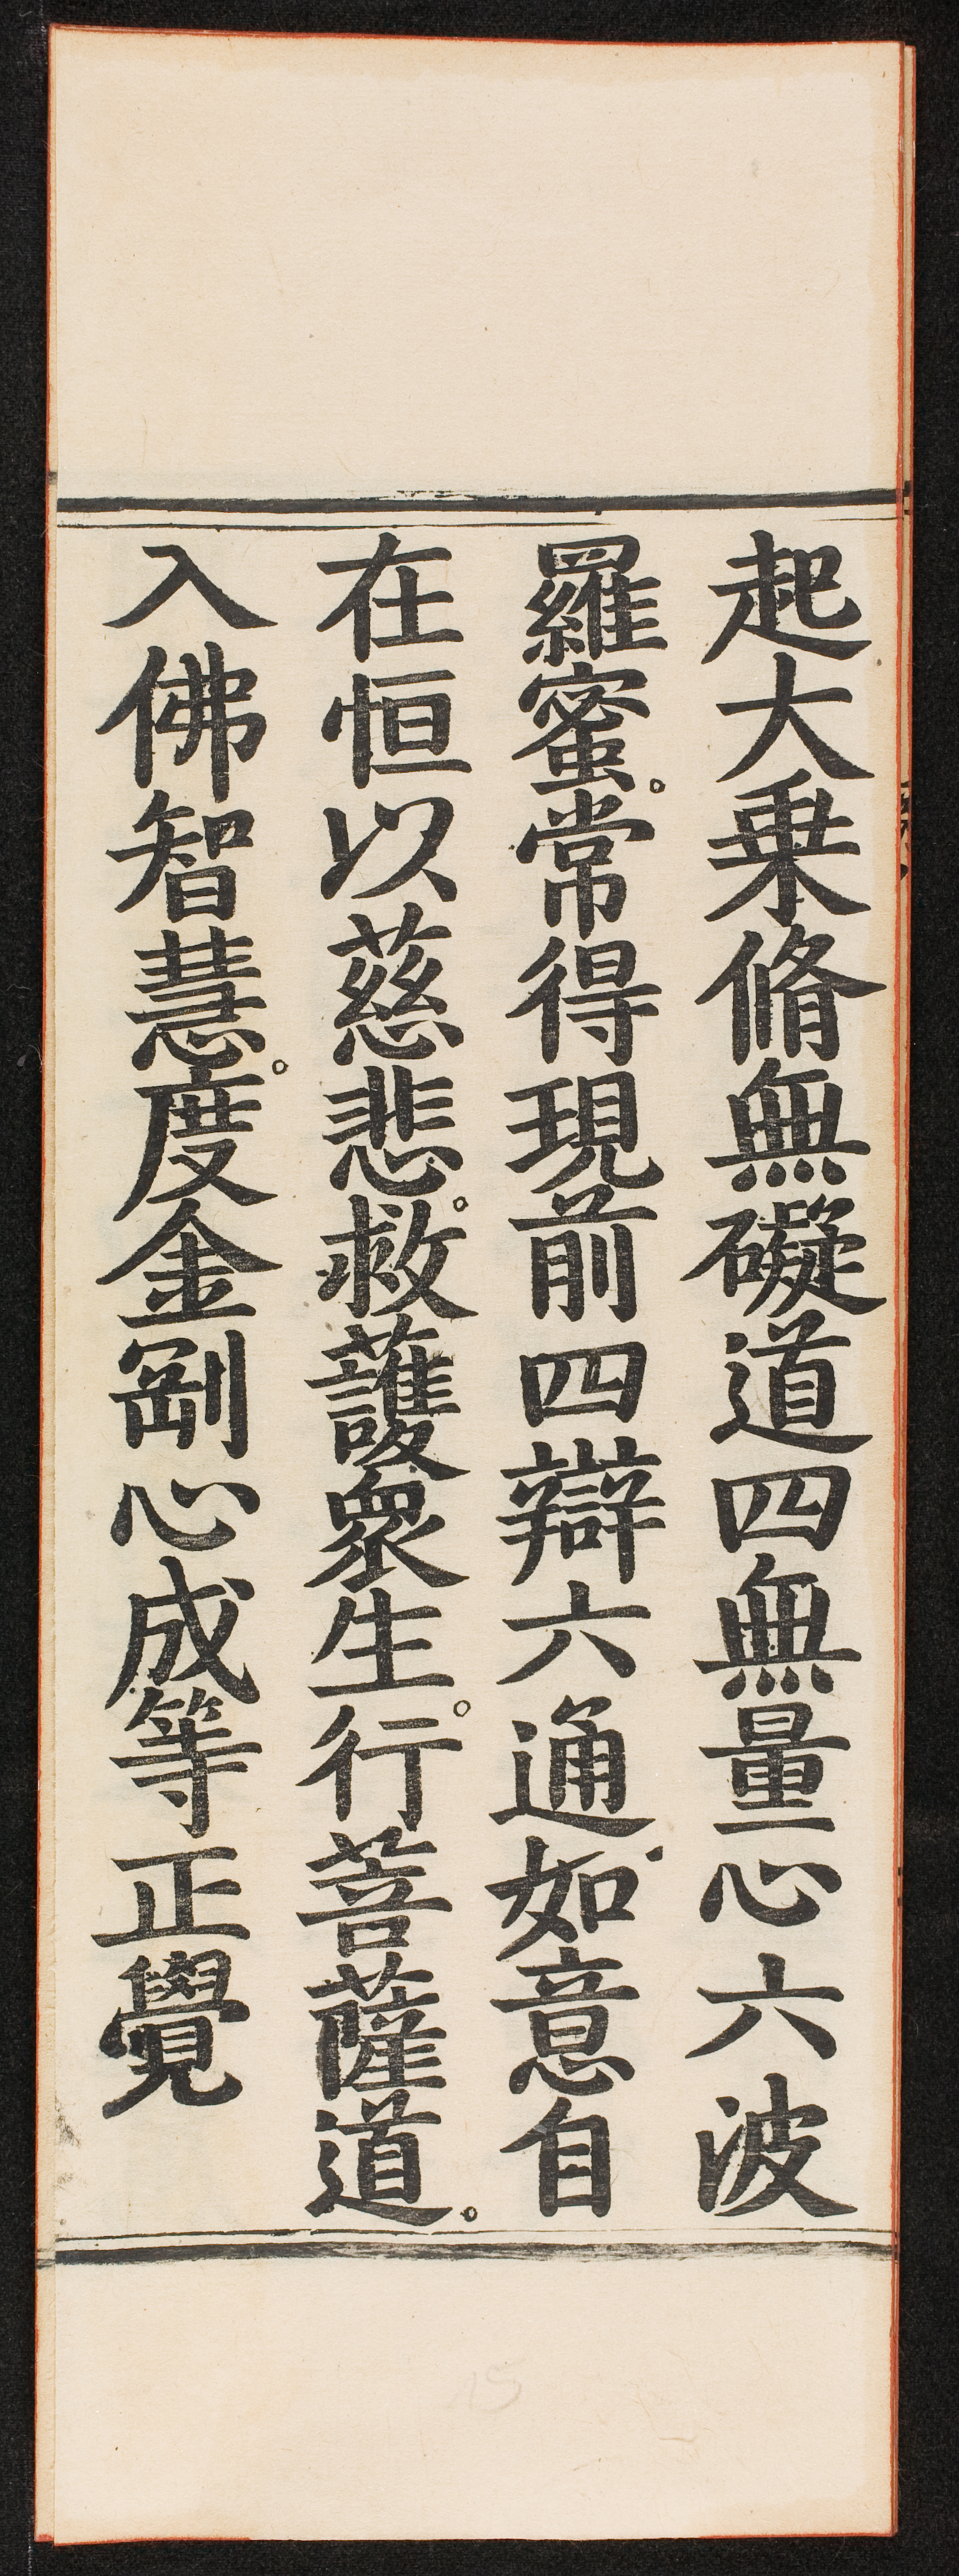 起大乗脩無礙道四無量心六波
羅蜜。常得現前四辯六通。如意自
在恒以慈悲。救護衆生。行菩薩道。
入佛智慧。度金剛心成等正覺